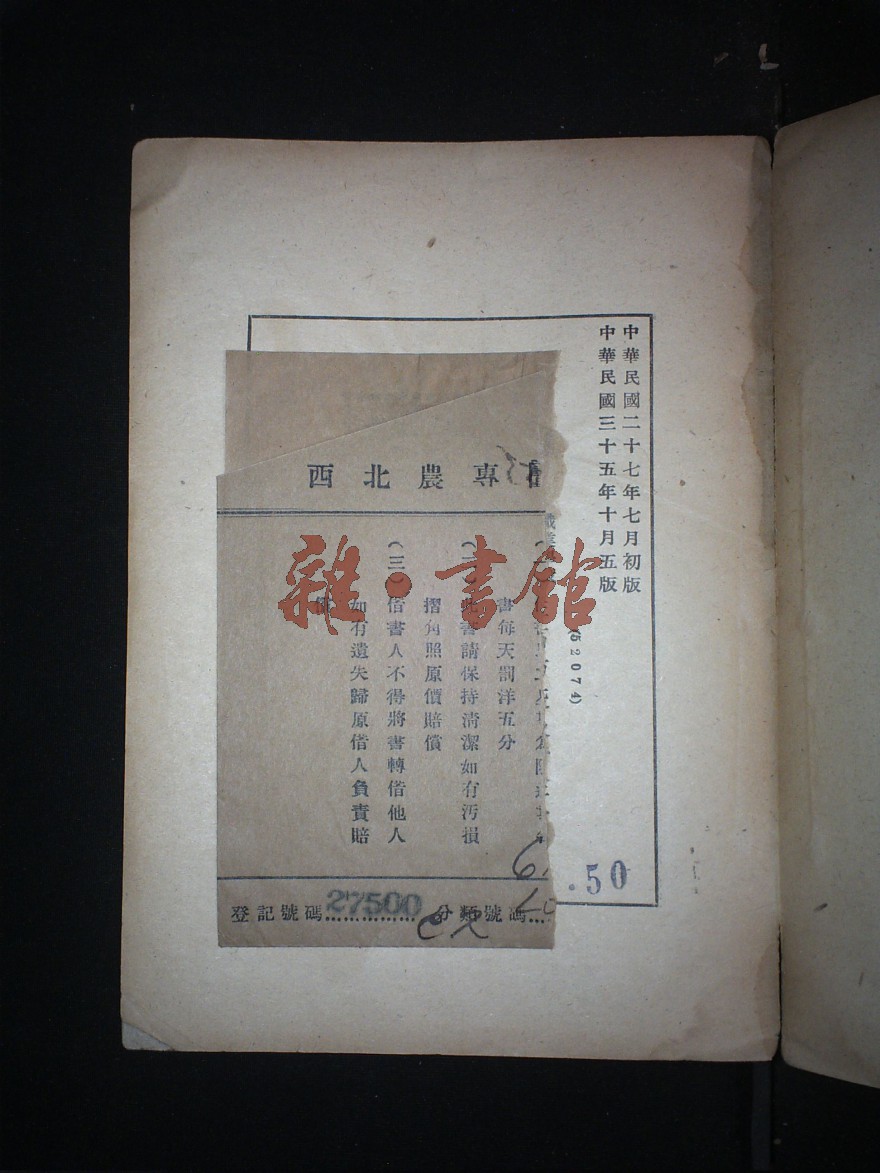 中華民國二十七年七月初版
中華民國三十五年十月五版
52074)
西北農專
書每天罰洋五分
此書請保持清潔如有污損
摺角照原價賠償
(三)借書人不得將書轉借他人
如有遺失歸原借人負責賠
償
.50
登記號碼 27500 分類號碼
雜·書館